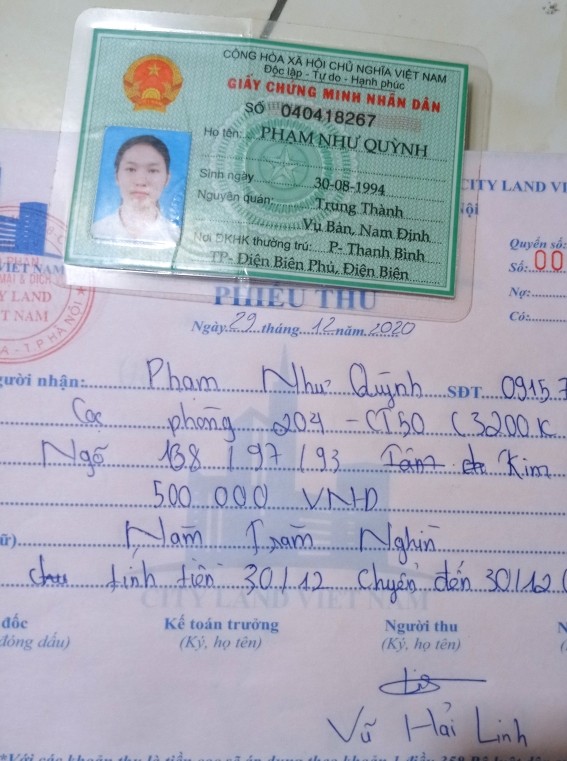 CÔNG HÒA XÃ HỘI CHỦ NGHĨA VIỆT NAM
Độc lập - Tự do - Hạnh phúc
GIẤY CHỨNG MINH NHÂN DÂN
SỐ 040418267
Họ tên: PHẠM NHƯ QUỲNH
Sinh ngày 30-08-1994
Nguyên quán: Trung Thành
Vụ Bản, Nam Định
Nơi ĐKHK thường trú: P- Thanh Bình
TP- Điện Biên Phủ, Điện Biên
CITY LAND VI
Nội
Quyển số:
Số: 00
Nợ:
Có:
VIỆT NAM
MẠI & DỊCH
Y LAND
T NAM
A - T.P HÀ NỘI
PHIẾU THU
Ngày 29 tháng 12 năm 2020
gười nhận: Phạm Như Quỳnh SĐT 0915.7
Cọc phòng 204 - CT50 (3200K
Ngõ 138 / 97 / 93 Kim
500 000 VNĐ
ữ) Năm Trăm Nghìn
tính tiền 30/12 chuyển đến 30/12 (
CITY LAND VIET NAM
đốc
Kế toán trưởng
Người thu
N
đóng dấu)
(Ký, họ tên)
(Ký, họ tên)
(
Vũ Hải Linh